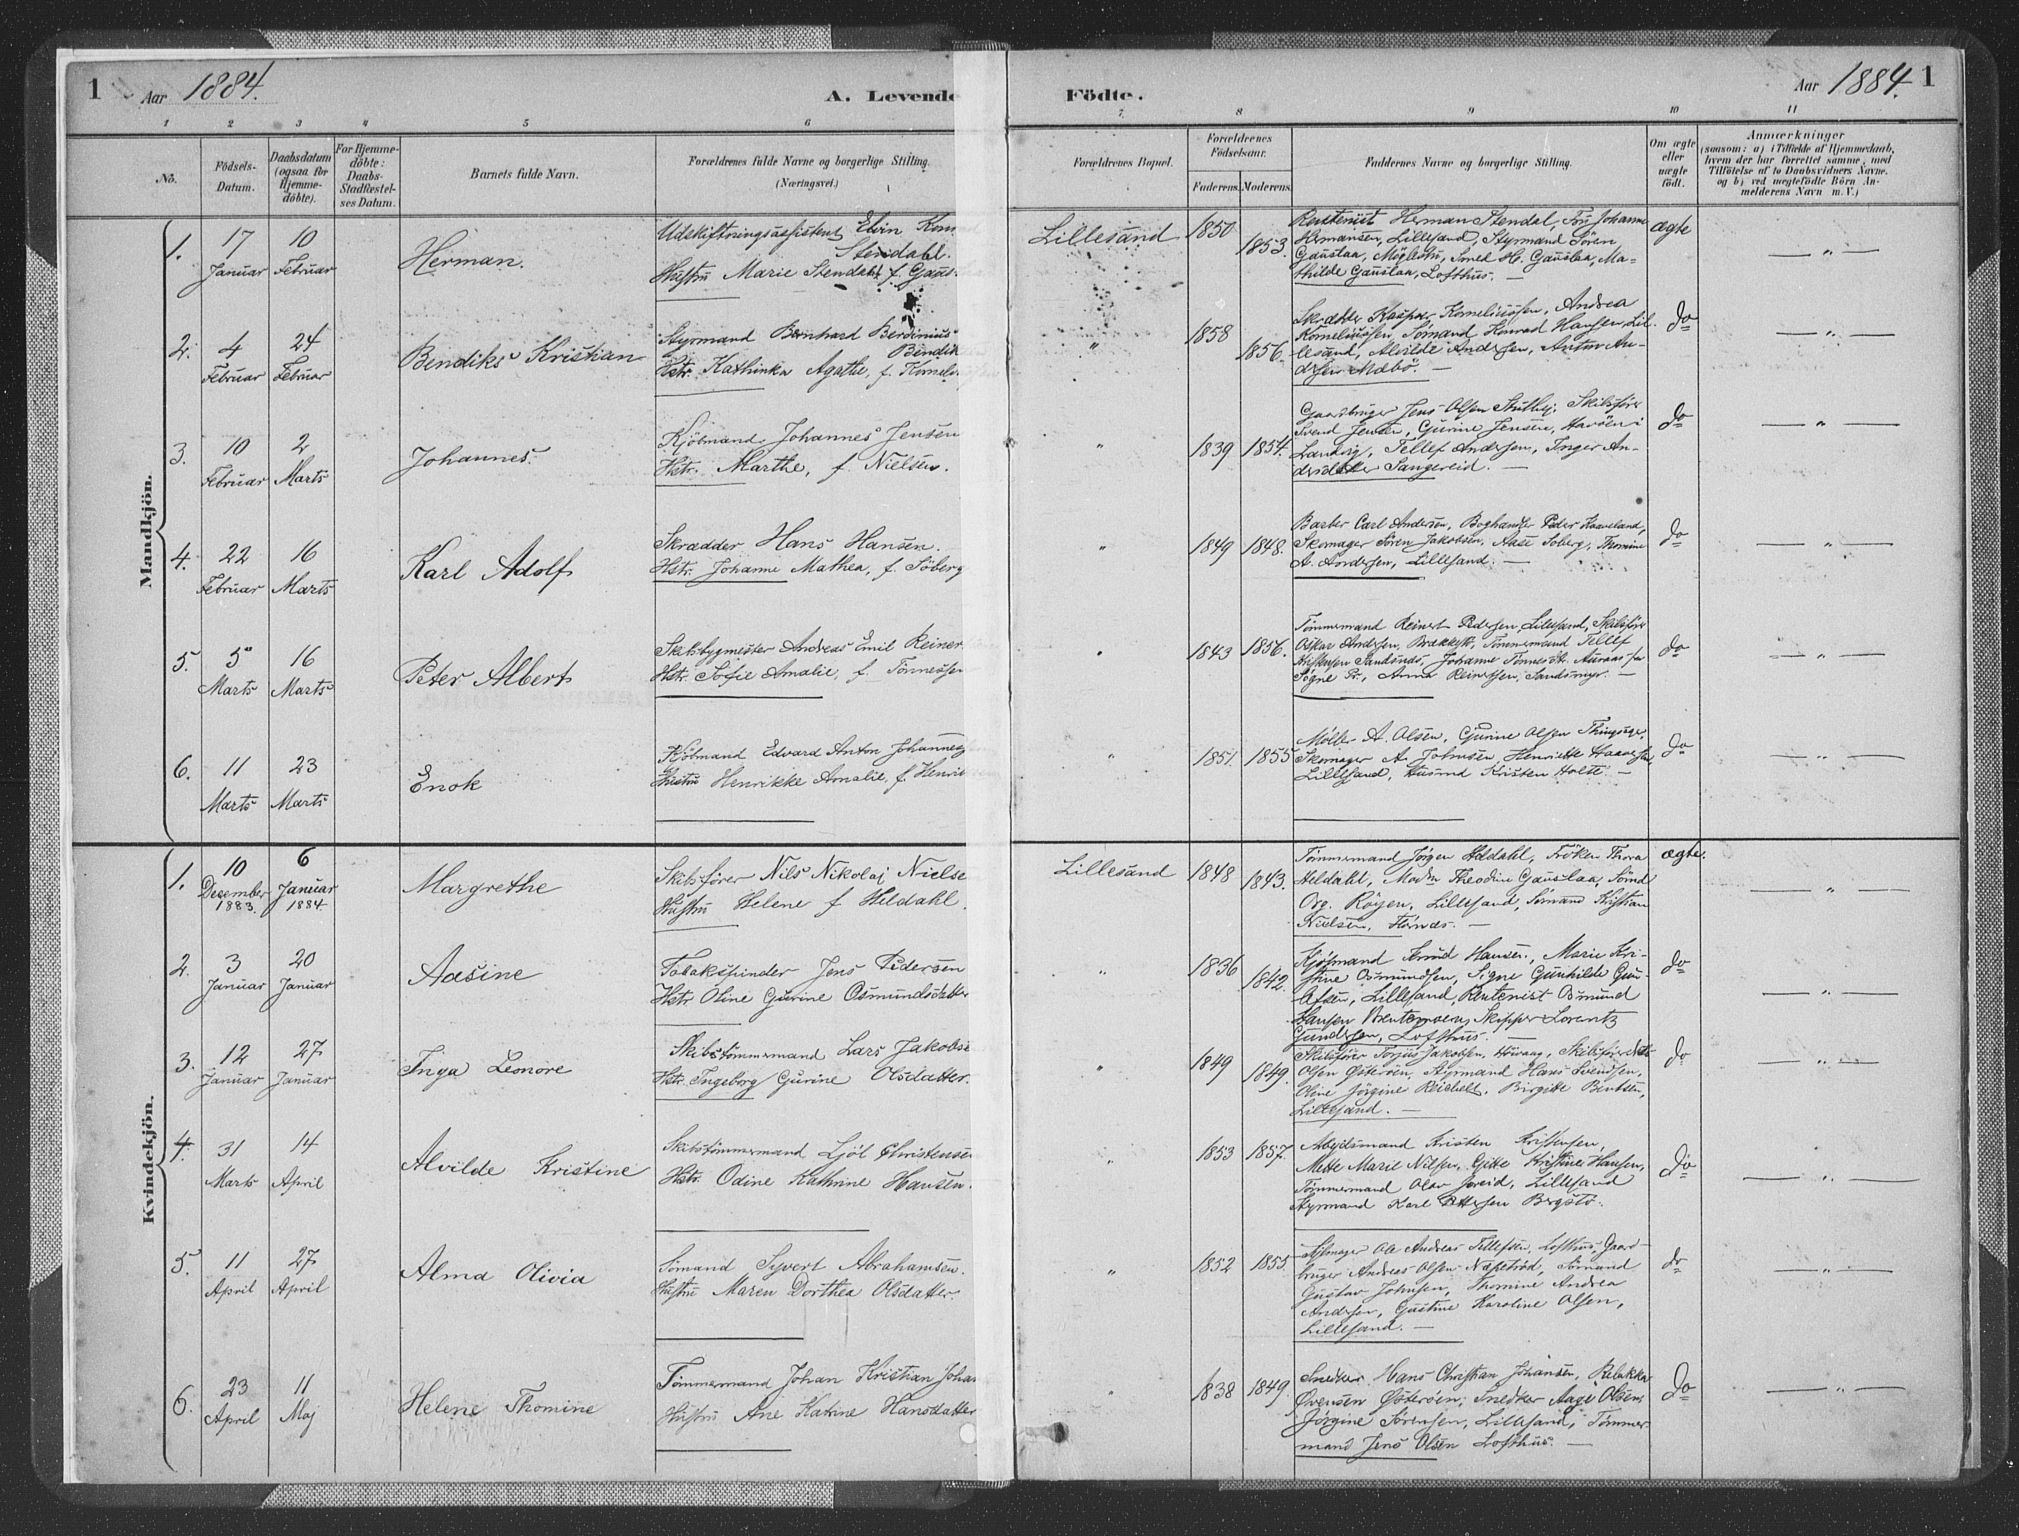 1 Aar 1884. A. Levende Födte. Aar 1884. 1
1 2 3 4 5 6 7 8 9 10 11
No.
Födsels-
Datum.
Daabsdatum
(ogsaa for
Hjemme-
döbte).
For Hjemme-
döbte:
Daabs-
Stadfæstel-
ses Datum.
Barnets fulde Navn.
Forældrenes fulde Navne og borgerlige Stilling.
(Næringsvei.)
Forældrenes Bopæl.
Forældrenes
Födselsaar.
Faderens. Moderens.
Faddernes Navne og borgerlige Stilling.
Om ægte
eller
uægte
födt.
Anmærkninger
(saasom: a) i Tilfælde af Hjemmedaab,
hvem der har forrettet samme, med
Tilföielse af to Daabsvidners Navne,
og b) ved uægtefödte Börn An-
melderens Navn m. V.)
Mandkjön.
1. 17 Januar 10 Februar
Herman.
Udskiftningsassistent Elvin Kon
Stendahl.
Hustru Marie Stendahl f. Gaus
Lillesand 1850 1853.
Rentenist Herman Stendal, Frü Johanne
Hermansen, Lillesand, Styrmand Sören
Gauslaa, Smed H. Gauslaa, Ma-
thilde Gauslaa, Lofthus. —
ægte — „ —
2. 4 Februar 24 Februar
Bendiks Kristian
Styrmand Bernhard Berdinius
Bendik
Hstr. Kathinka Agathe, f. Korneli
„ 1858 1856.
Skrædder Kasper Korneliussen, Andrea
Korneliussen, Sömand Konrad Hansen, Lil-
lesand, Alvilde Andersen, Anton An-
dersen Mæbö. —
do — „ —
3. 10 Februar 2 Marts
Johannes.
Kjöbmand Johannes Jensen
Hstr. Marthe, f. Nielsen.
„ 1839 1854.
Gaardbruger Jens Olsen Skibsförer
Svend Jensen, Gurine Jensen, Havöen i
Landvig, Tellef Andersen, Inger An-
dersdatter Sangereid. —
do — „ —
4. 22 Februar 16 Marts
Karl Adolf
Skrædder Hans Hansen.
Hstr. Johanne Mathea, f. Söberg
„ 1849 1848.
Barber Carl Andersen, Boghandler Peder Kaaveland,
Skomager Sören Jakobsen, Aase Soberg, Thomine
A. Andersen, Lillesand. —
do — „ —
5. 5 Marts 16 Marts
Peter Albert
Skibsbygmester Andreas Emil Reiner
Hstr. Sofie Amalie, f. Tönnessen
„ 1843 1856.
Tömmermand Reinert Pedersen, Lillesand, Skibsförer
Oskar Andersen, Brækkestö, Tömmermand Tellef
Kristensen Sandsnes, Johanne
Sögne Pr., Anna Reinertsen, Sandsmyr. —
do — „ —
6. 11 Marts 23 Marts
Enok
Kjöbmand Edvard Anton Johannes
Hustru Henrikke Amalie, f. Henri
„ 1851. 1855
Möller A. Olsen, Gurine Olsen
Skomager A. Johnsen, Henriette
Lillesand, Kristen Holte. —
do — „ —
Kvindekjön.
1. 10 December 1883. 6 Januar 1884.
Margrethe
Skibsförer Nils Nikolaj Nielse
Hustru Helene f. Heldahl.
Lillesand 1848 1843.
Tømmermand Jörgen Heldahl, Fröken Thora
Heldahl, Madm Theodine Gauslaa, Sömd
Röyen, Lillesand, Sömand Kristian
Nielsen, —
ægte. — „ —
2. 3 Januar 20 Januar
Aasine
Tobakspinder Jens Pedersen
Hstr. Oline Gurine Osmundsdatter
„ 1836 1842.
Kjöbmand Knud Hansen, Marie Kri-
stine Osmundsen, Signe Gunhilde Gun-
Lillesand, Rentenist Osmund
Hansen Skipper Lorentz
Gundersen, Lofthus. —
do — „ —
3. 12 Januar 27 Januar
Inga Leonore
Skibstömmermand Lars Jakobse
Hstr. Ingeborg Gurine Olsdatter.
„ 1849 1849.
Skibsförer Torjus Jakobsen, Hövaag, Skibsförer
Olsen Østeröen, Styrmand Hans Svendsen,
Oline Jörgine Reichelt, Birgitte Bentsen,
Lillesand. —
do — „ —
4. 31 Marts 14 April
Alvilde Kristine
Skibstömmermand Ljöl Christensen
Hstr. Odine Kathrine Hansen.
„ 1853 1857.
Arbeidsmand Kristen Kristensen,
Mette Marie Nilsen, Gitte Kristine Hansen,
Tömmermand Olav Lillesand
Styrmand Karl Pettersen Bergstö.
do — „ —
5. 11 April 27 April
Alma Olivia
Sömand Syvert Abrahamsen.
Hustru Maren Dorthea Olsdatter.
„ 1852 1855
Skomager Ole Andreas Tellefsen, Lofthus, Gaard-
bruger Andreas Olsen Næsetröd, Sömand
Gustav Johnsen, Thomine Andrea
Andersen, Gustine Karoline Olsen,
Lillesand. —
do — „ —
6. 23 April 11 Maj
Helene Thomine
Tömmermand Johan Kristian Johan
Hustru Ane Katrine Hansdatter
„ 1838 1849.
Snedker Hans Christian Johansen, Rebekka
Evensen Østeröen, Snedker Aage Olsen,
Jörgine Sörensen, Lillesand, Tömmer-
mand Jens Olsen Lofthus. —
do — „ —